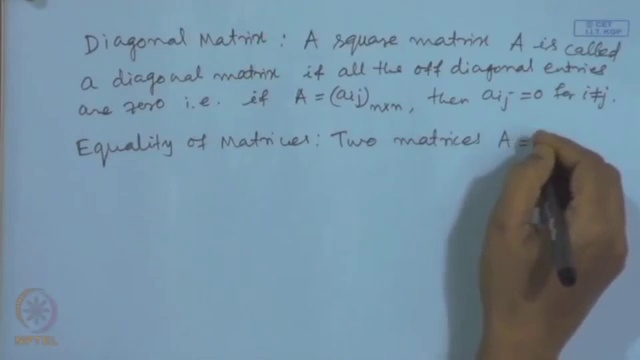 © CET
I.I.T. KGP
Diagonal Matrix : A square matrix A is called
a diagonal matrix if all the off diagonal entries
are zero i.e. if A = (aij)n×n, then aij = 0 for i≠j.
Equality of Matrices : Two matrices A =
NPTEL